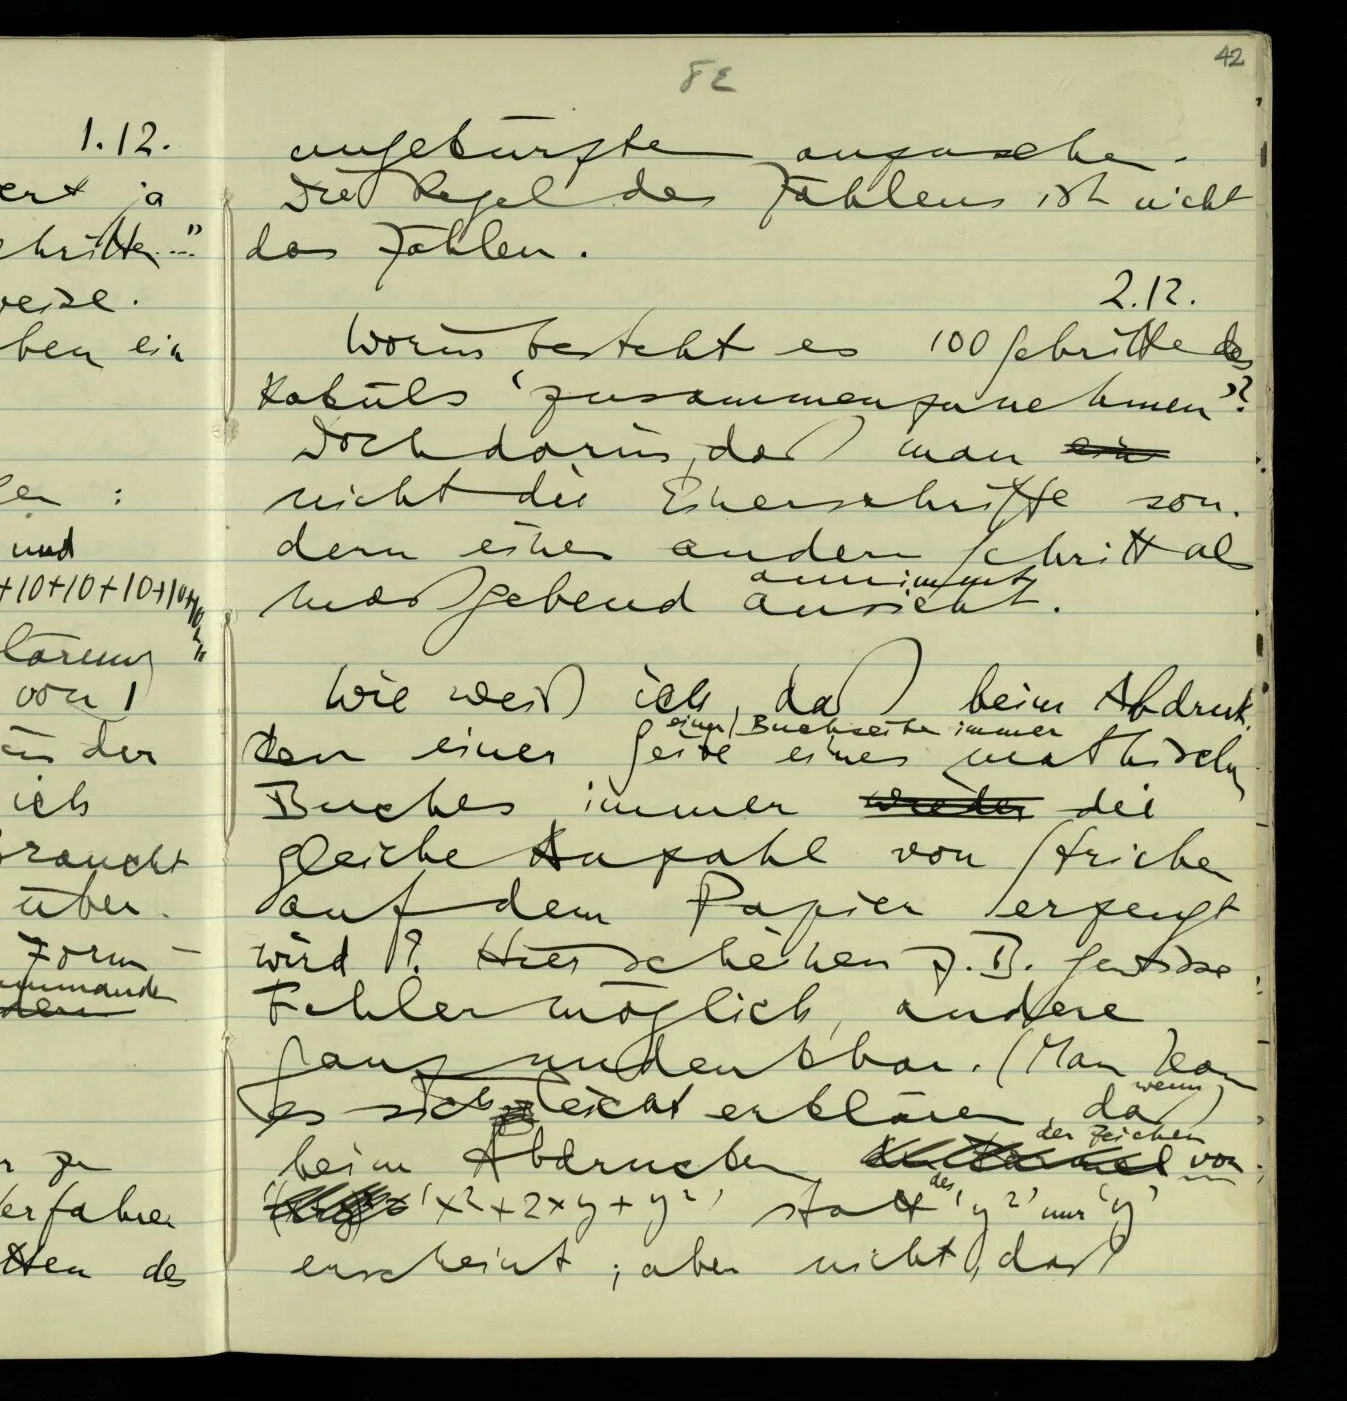 42
1.12.
ert ja
chritten..."
weise.
ben ein
en :
und
+10+10+10+10+10
"
lärung
von 1
in der
ich
braucht
über-
Form –
r zu
Verfahren
tten des
ungekürzten anzusehen.
Die Regel des Zählens ist nicht
das Zählen.
2.12.
Worin besteht es 100 Schritte des
Kalküls 'zusammenzunehmen'?
Doch darin, daß man ein
nicht die Einerschritte son-
dern einen andern Schritt als
annimmt
maßgebend ansieht.
Wie weiß ich, daß beim Abdruk-
einer Buchseite immer
ken einer Seite eines mathischen
Buches immer wieder die
gleiche Anzahl von Strichen
auf dem Papier erzeugt
wird? Hier scheinen z.B. gewisse
Fehler möglich, andere
ganz undenkbar. (Man kann
wenn
es sich leicht erklären, daß
der Zeichen
beim Abdrucken von
des
'x²+2xy+y²' statt 'y²' nur 'y'
erscheint; aber nicht, daß